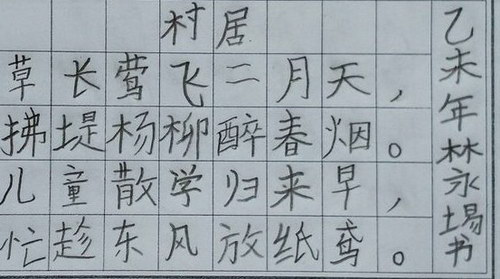 村居
草长莺飞二月天，
拂堤杨柳醉春烟。
儿童散学归来早，
忙趁东风放纸鸢。
乙未年林永易书